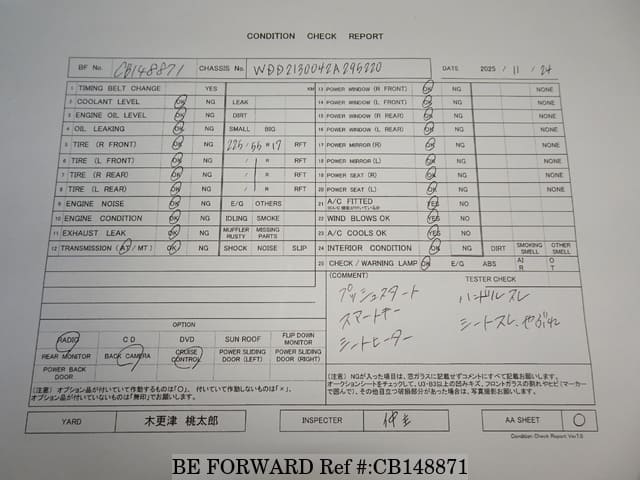 CONDITION CHECK REPORT
BF No. CB148871 CHASSIS No. WDD2130042A295220 DATE 2025 / 11 / 24
1 TIMING BELT CHANGE YES KM 13 POWER WINDOW (R FRONT) OK NG NONE
2 COOLANT LEVEL OK NG LEAK 14 POWER WINDOW (L FRONT) OK NG NONE
3 ENGINE OIL LEVEL OK NG DIRT 15 POWER WINDOW (R REAR) OK NG NONE
4 OIL LEAKING OK NG SMALL BIG 16 POWER WINDOW (L REAR) OK NG NONE
5 TIRE (R FRONT) OK NG 225/55 R 17 RFT 17 POWER MIRROR (R) OK NG NONE
6 TIRE (L FRONT) OK NG / R RFT 18 POWER MIRROR (L) OK NG NONE
7 TIRE (R REAR) OK NG / R RFT 19 POWER SEAT (R) OK NG NONE
8 TIRE (L REAR) OK NG / R RFT 20 POWER SEAT (L) OK NG NONE
9 ENGINE NOISE OK NG E/G OTHERS 21 A/C FITTED YES NO
10 ENGINE CONDITION OK NG IDLING SMOKE 22 WIND BLOWS OK YES NO
11 EXHAUST LEAK OK NG MUFFLER RUSTY MISSING PARTS 23 A/C COOLS OK YES NO
12 TRANSMISSION (AT / MT) OK NG SHOCK NOISE SLIP 24 INTERIOR CONDITION OK NG DIRT SMOKING SMELL OTHER SMELL
25 CHECK / WARNING LAMP OK E/G ABS AIR O T
(COMMENT) TESTER CHECK
プッシュスタート ハンドルスレ
スマートキー シートスレ、やぶれ
シートヒーター
OPTION
RADIO CD DVD SUN ROOF FLIP DOWN MONITOR
REAR MONITOR BACK CAMERA CRUISE CONTROL POWER SLIDING DOOR (LEFT) POWER SLIDING DOOR (RIGHT)
POWER BACK DOOR
(注意) オプション品が付いていて作動するものは「○」、付いていて作動しないものは「×」、
オプション品が付いていないものは「無印」でお願いします。
(注意) NGが入った項目は、恐ガラスに記載せずコメントにすべて記載お願いします。
オークションシートをチェックして、U3・B3以上の凹みキズ、フロントガラスの割れやヒビ（マーカー
で囲んで）、その他目立つ破損部分があった場合は、写真撮影お願いします。
YARD 木更津 桃太郎 INSPECTER AA SHEET ○
Condition Check Report Ver1.0
BE FORWARD Ref #:CB148871